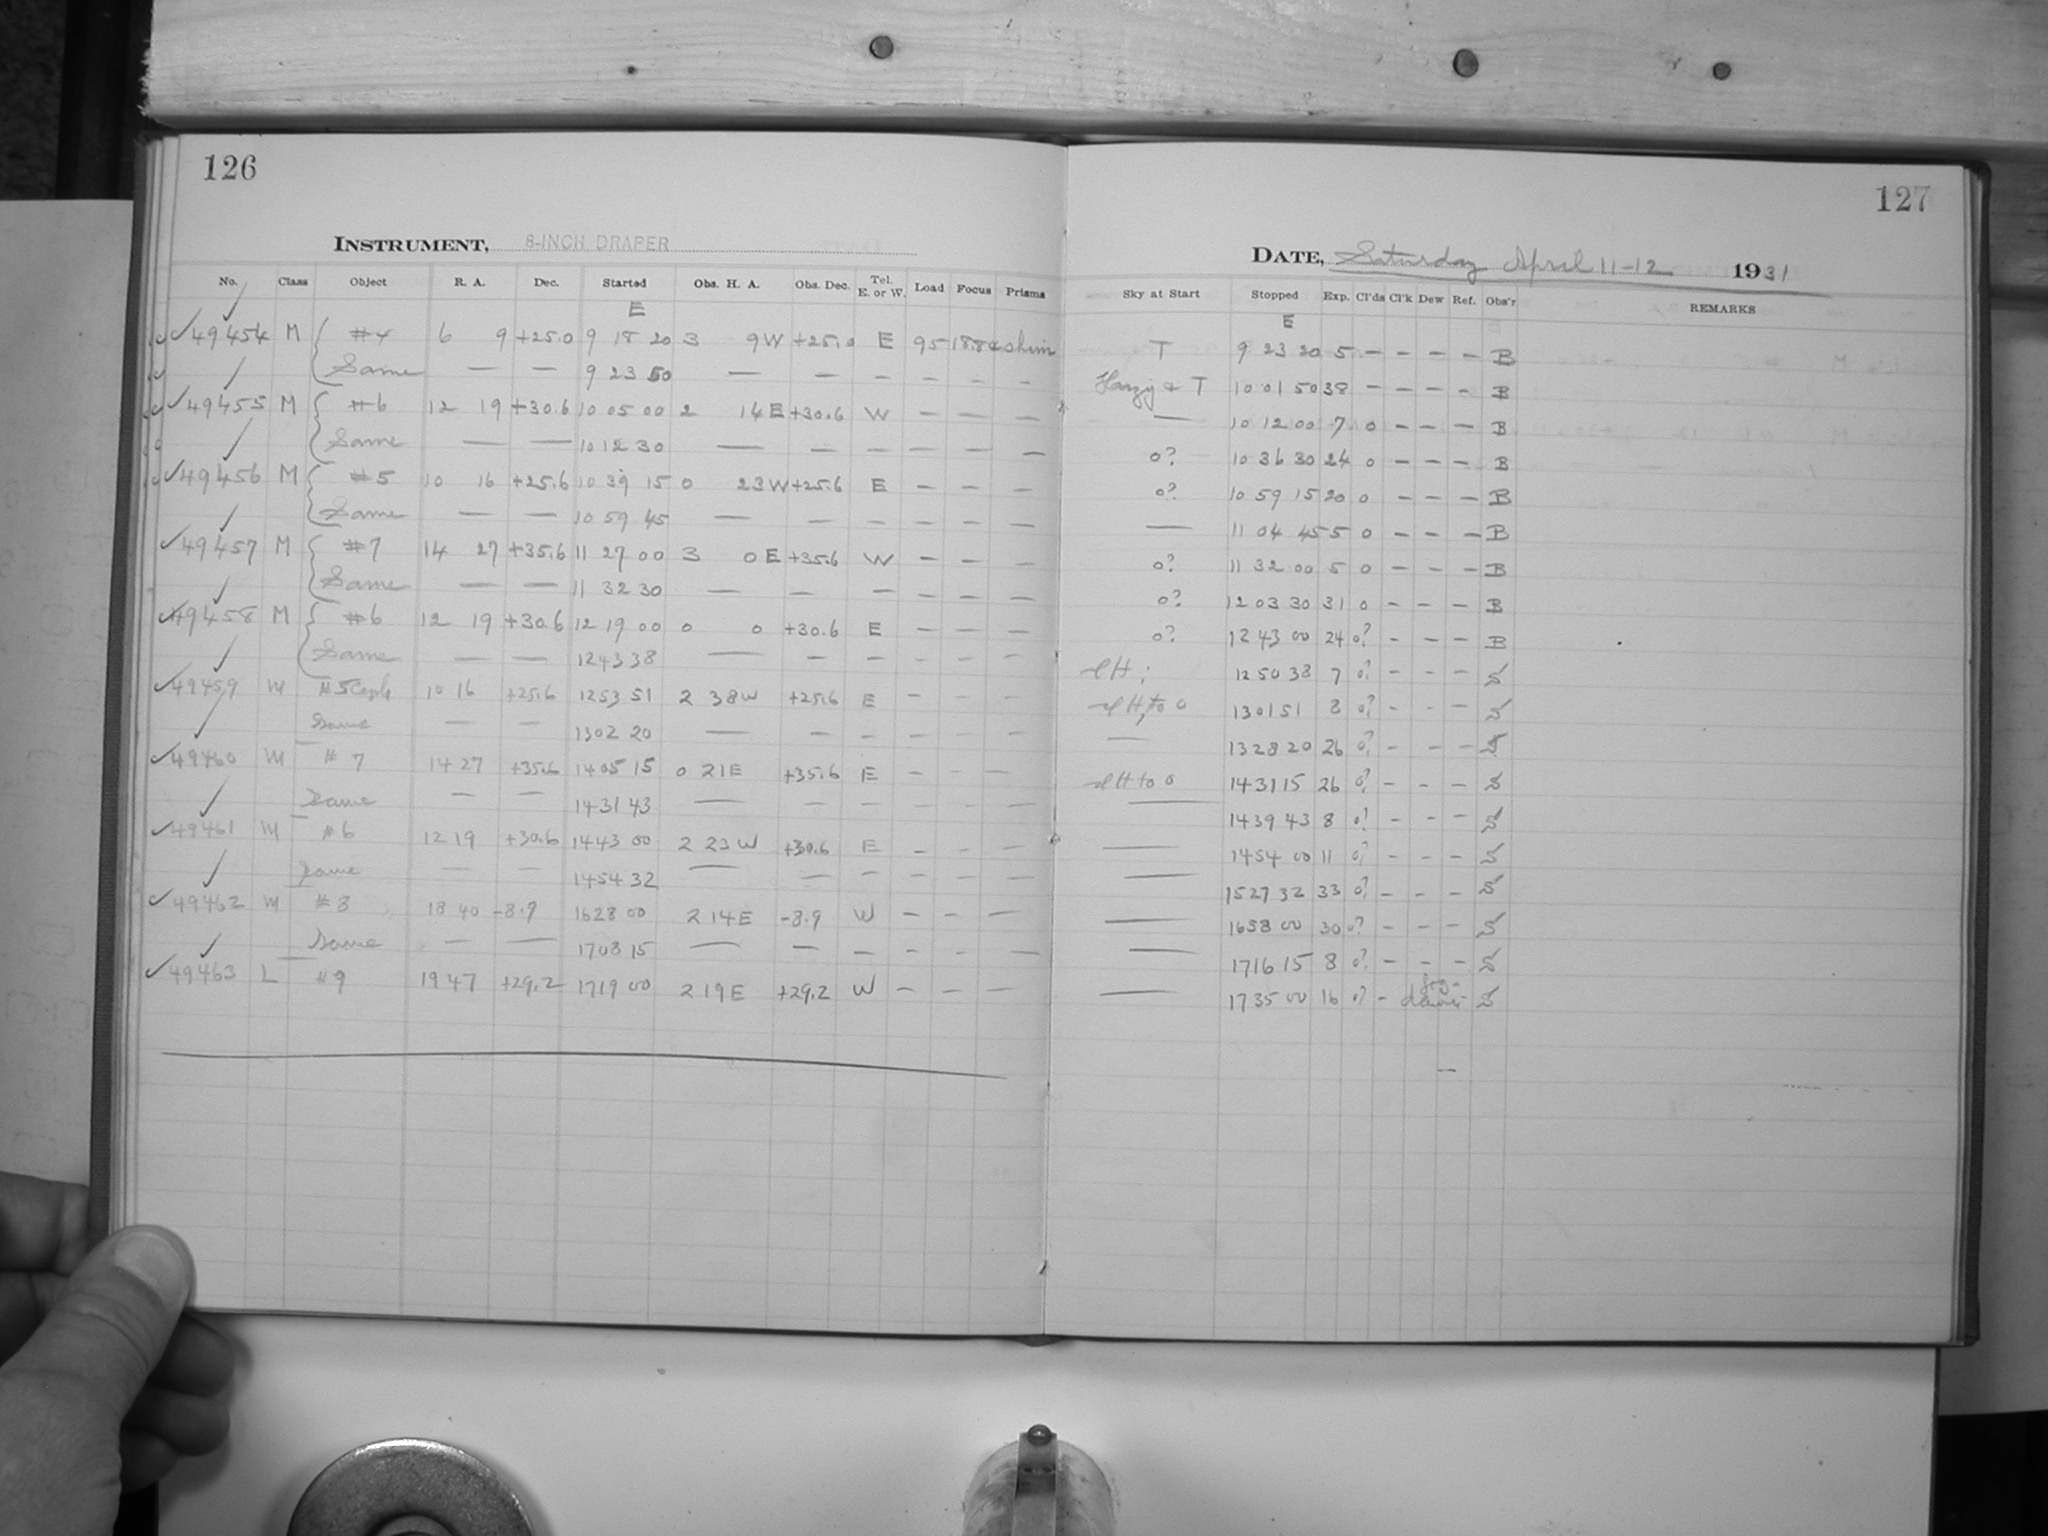 126
127
INSTRUMENT, 8-INCH DRAPER
DATE, Saturday April 11-12 1931
No. Class Object R. A. Dec. Started Obs. H. A. Obs. Dec. Tel. E. or W. Load Focus Prisms Sky at Start Stopped Exp. Cl'ds Cl'k Dew Ref. Obs'r REMARKS
E E
49454 M #4 6 9 +25.0 9 18 20 3 9 W +25.0 E 95 T 9 23 20 5 — — — — B
Same — — 9 23 50 — — — — — — Hazy & T 10 01 50 38 — — — — B
49455 M #6 12 19 +30.6 10 05 00 2 14 E +30.6 W — — — — 10 12 00 7 0 — — — B
Same — — 10 12 30 — — — — — — 0? 10 36 30 24 0 — — — B
49456 M #5 10 16 +25.6 10 39 15 0 23 W +25.6 E — — — 0? 10 59 15 20 0 — — — B
Same — — 10 59 45 — — — — — — — 11 04 45 5 0 — — — B
49457 M #7 14 27 +35.6 11 27 00 3 0 E +35.6 W — — — 0? 11 32 00 5 0 — — — B
Same — — 11 32 30 — — — — — — 0? 12 03 30 31 0 — — — B
49458 M #6 12 19 +30.6 12 19 00 0 0 +30.6 E — — — 0? 12 43 00 24 0? — — — B
Same — — 12 43 38 — — — — — — 12 50 38 7 0? — — — S
49459 M #5 10 16 +25.6 12 53 51 2 38 W +25.6 E — — — 13 01 51 8 0? — — — S
Same — — 13 02 20 — — — — — — — 13 28 20 26 0? — — — S
49460 M #7 14 27 +35.6 14 05 15 0 21 E +35.6 E — — — to 0 14 31 15 26 0? — — — S
Same — — 14 31 43 — — — — — — — 14 39 43 8 0? — — — S
49461 M #6 12 19 +30.6 14 43 00 2 23 W +30.6 E — — — — 14 54 00 11 0? — — — S
Same — — 14 54 32 — — — — — — — 15 27 32 33 0? — — — S
49462 M #8 18 40 -8.9 16 28 00 2 14 E -8.9 W — — — — 16 58 00 30 0? — — — S
Same — — 17 08 15 — — — — — — — 17 16 15 8 0? — — — S
49463 L #9 19 47 +29.2 17 19 00 2 19 E +29.2 W — — — — 17 35 00 16 0? — S